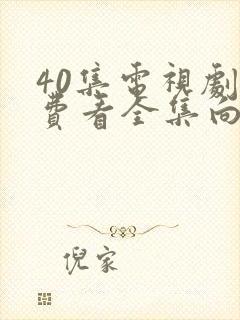 40集電視劇
費看全集向
倪家